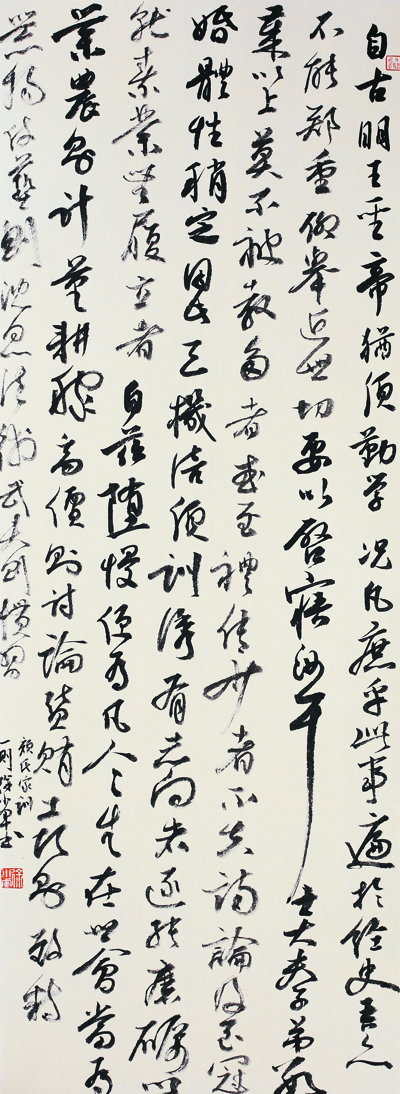 自古明王圣帝猶須勤学况凡庶乎此事遍於经史吾亦
不能鄭重聊舉近世切要以啓寤汝耳士大夫子弟數
歲以上莫不被教多者或至禮傳少者不失詩論及至冠
婚體性稍定因此天機倍須訓誘有志向者遂能磨礪以
就素業無履立者自茲堕慢便为凡人人生在世會當为
業農則計量耕稼商價則討論貨賄工巧則致精
器物伎藝則沈思法術武夫則慣習
顏氏家訓
一則